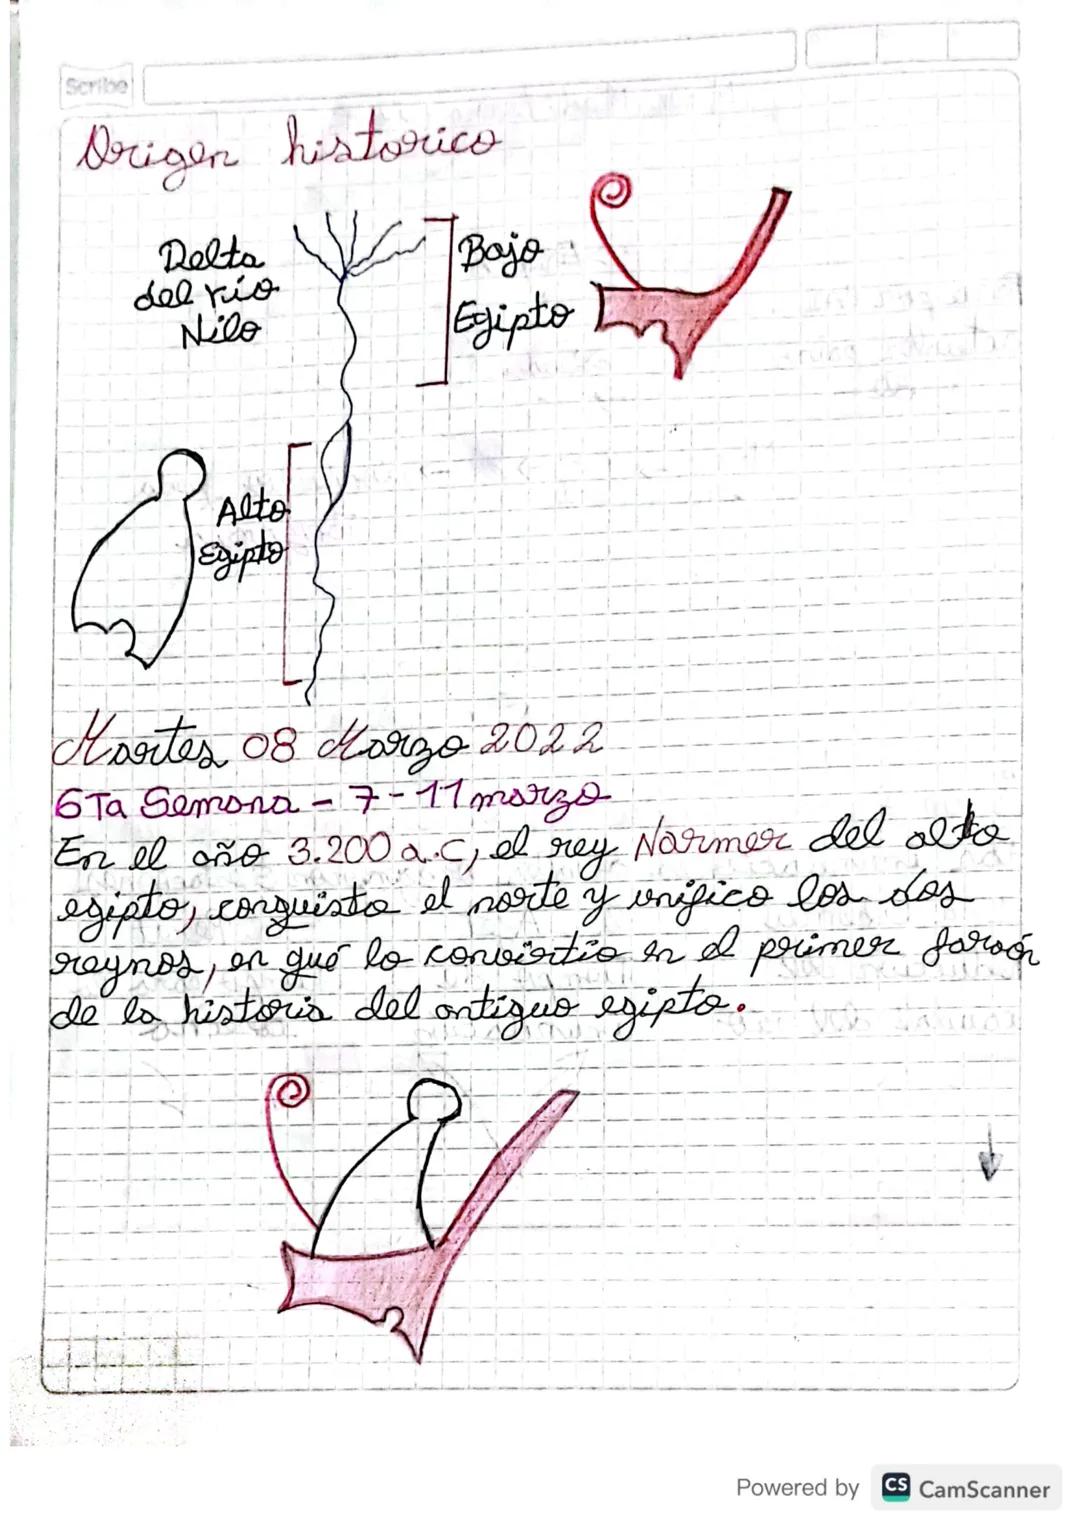 Scribe
Origen historico
Delta
del río
Nilo
Bajo
Egipto
Alto
Egipto
Martes 08 Marzo 2022
6Ta Semana - 7 - 11 marzo
En el año 3.200 a.C, el rey Narmer del alto
egipto, conquista el norte y unifico los dos
reynos, en qué lo conviertio en el primer faraón
de la historia del antiguo egipto.
Powered by CS CamScanner